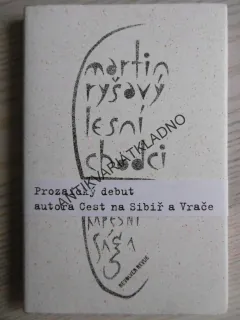 martin
ryšavý
lesní
chodci
ANTIKVARIÁT KLADNO
Prozaický debut
autora Cest na Sibiř a Vrače
kapesní
sága
REVOLVER REVUE